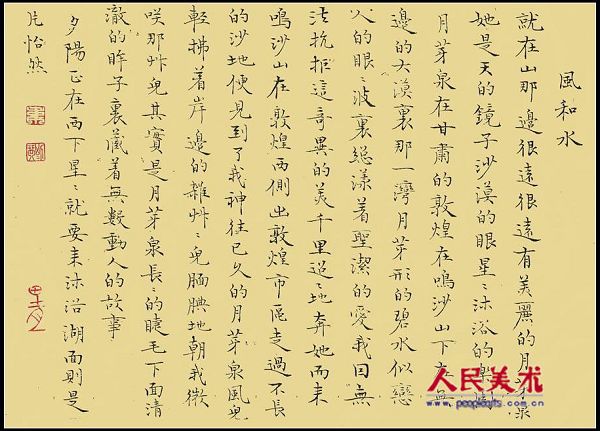 風和水
就在山那邊很遠很遠有美麗的月芽泉
她是天的鏡子沙漠的眼星〻沐浴的
月芽泉在甘肅的敦煌在鳴沙山下在無
邊的大漠裏那一灣月芽形的碧水似戀
人的眼〻波裏總漾着聖潔的愛我因無
法抗拒這奇異的美千里迢〻地奔她而來
鳴沙山在敦煌西側出敦煌市區走過不長
的沙地便見到了我神往已久的月芽泉風兒
輕拂着岸邊的雜艸〻兒腼腆地朝我微
咲那艸兒其實是月芽泉長〻的睫毛下面清
澈的眸子裏藏着無數動人的故事
夕陽正在西下星〻就要來沐浴湖面則是一
片怡然
人民美术
www.peopleart.com